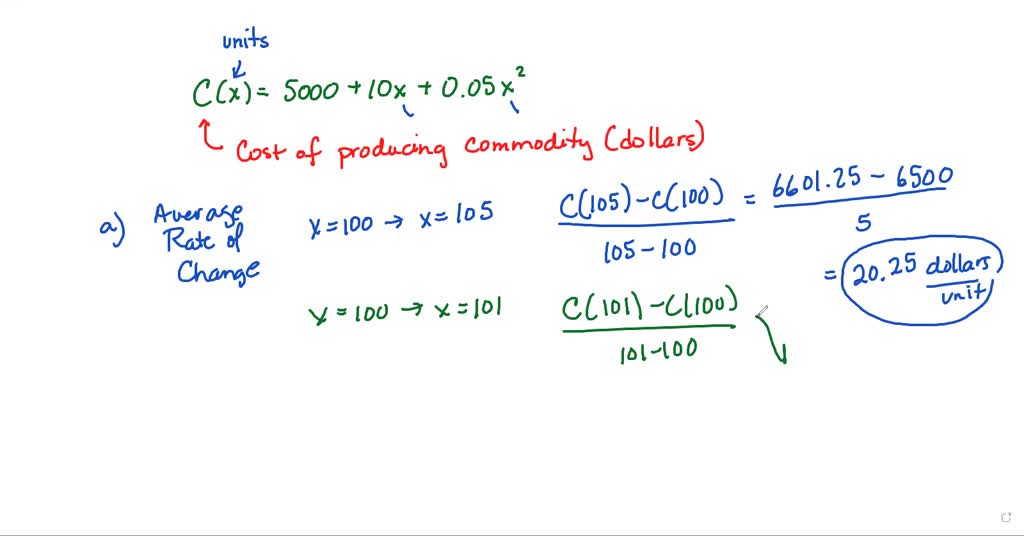 units
C(x) = 5000 + 10x + 0.05x²
Cost of producing commodity (dollars)
a) Average Rate of Change
x = 100 → x = 105
C(105) - C(100) / 105 - 100 = 6601.25 - 6500 / 5
= 20.25 dollars/unit
x = 100 → x = 101
C(101) - C(100) / 101 - 100